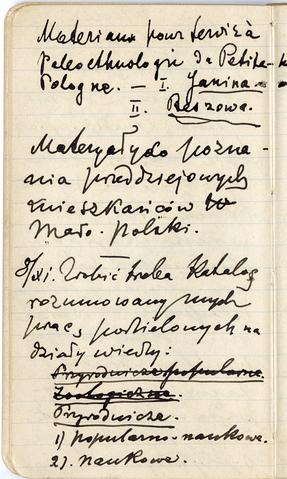 Materiaux pour servir à
paleoethnologie da Petite-
Pologne. — I. Janina.
II. Reszowa.
Materyały do pozna-
nia przeddziejowych
mieszkańców
Mało-polski.
8/XI. Zrobić trzeba Katalog
rozumowany mych
prac, podzielonych na
działy wiedzy:
Przyrodnicze popularne
Zoologiczne
Przyrodnicze.
1) popularno-naukowe.
2) naukowe.